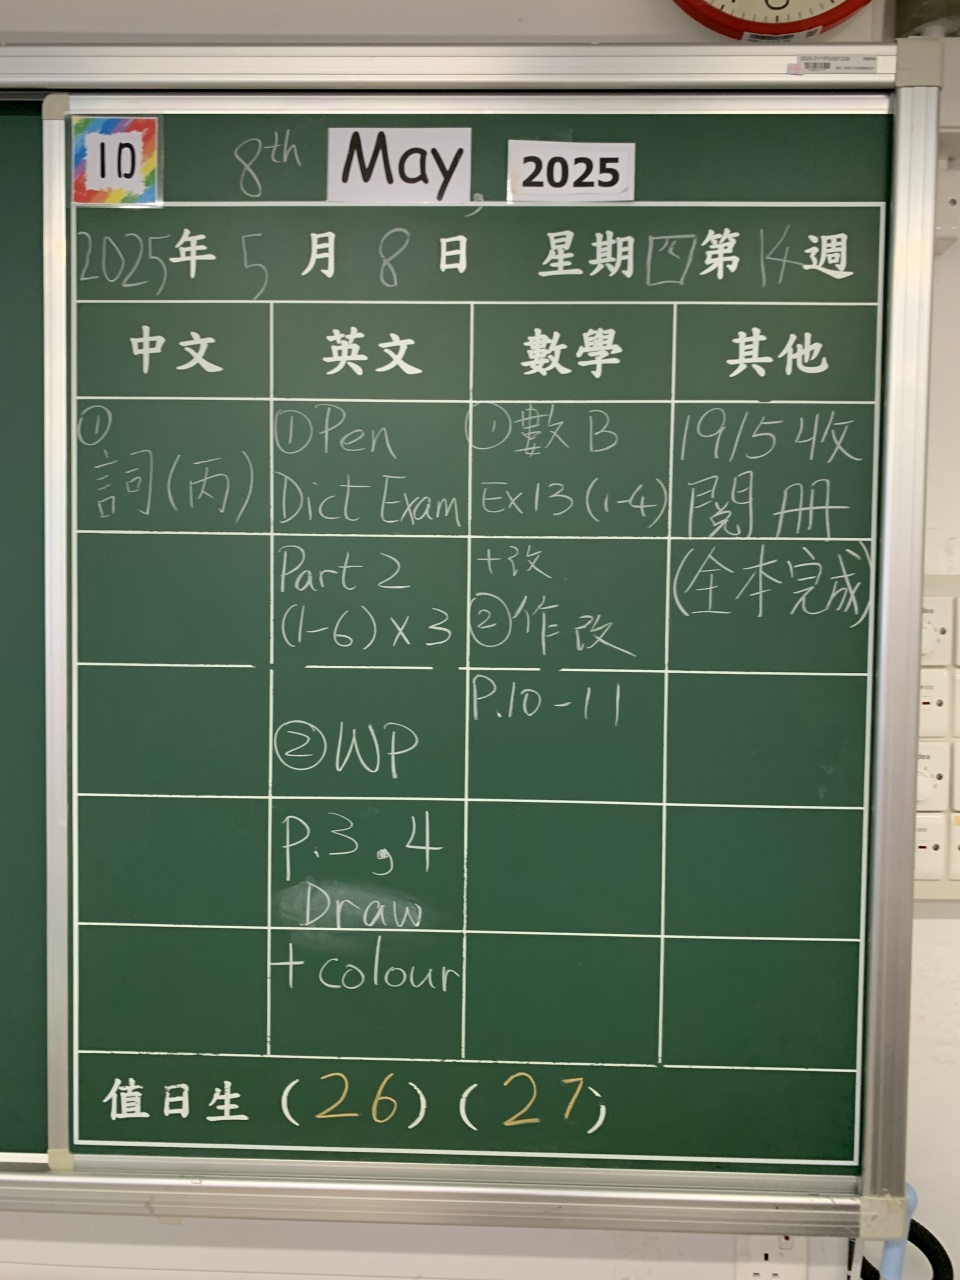 1D
8th May, 2025
2025年 5月 8日 星期四 第14週
中文 英文 數學 其他
①
詞(丙)
①Pen
Dict Exam
Part 2
(1-6)×3
②WP
P.3,4
Draw
+ colour
①數B
Ex13(1-4)
+改
②作改
P.10-11
19/5收
閱冊
(全本完成)
值日生 (26) (27)